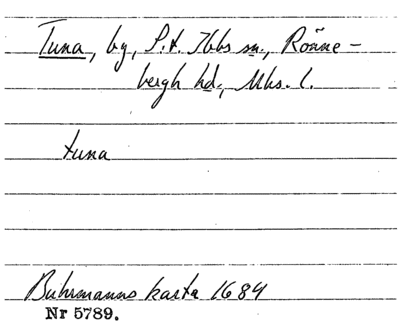 Tuna, by, S.t. Ibbs sn., Rönne-
bergh hd., Mhs. l.
tuna
Buhrmanns karta 1684
Nr 5789.